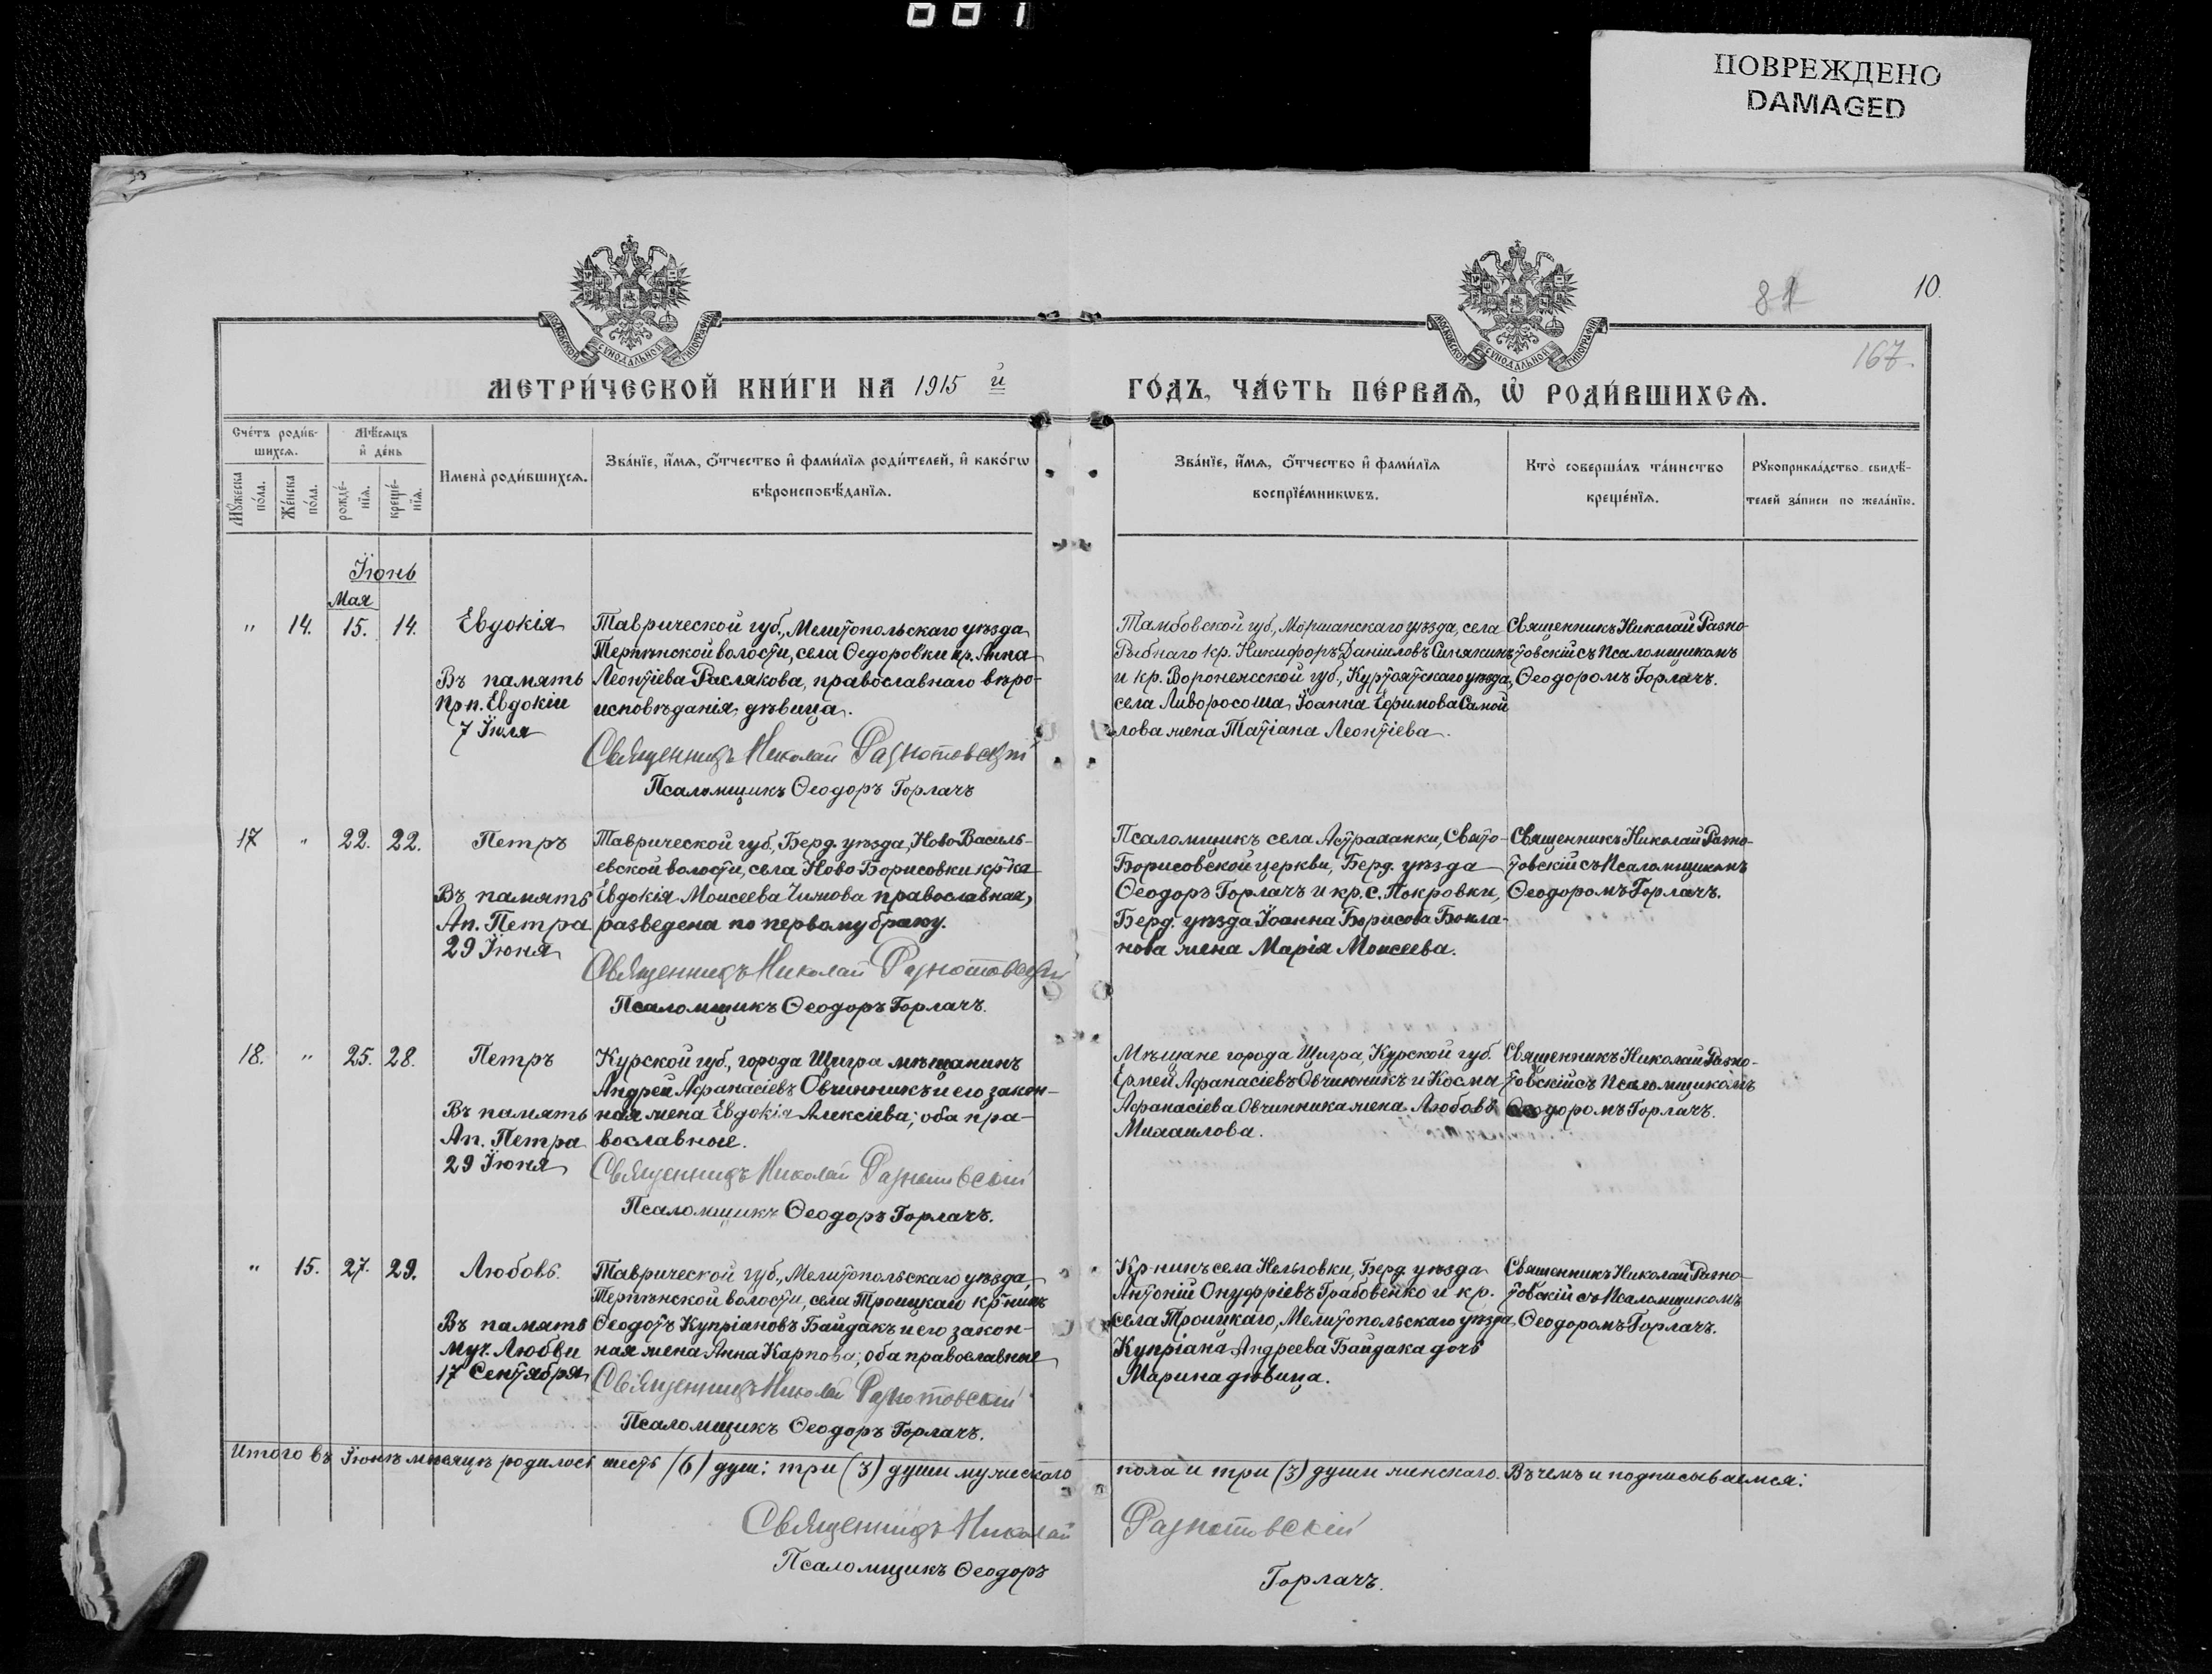 001
ПОВРЕЖДЕНО
DAMAGED
81
10.
167.
МОСКОВСКОЙ СѴНОДАЛЬНОЙ ТИПОГРАФІИ
МОСКОВСКОЙ СѴНОДАЛЬНОЙ ТИПОГРАФІИ
МЕТРИ́ЧЕСКОЙ КНИ́ГИ НА 1915 й
ГО́ДЪ, ЧА́СТЬ ПЕ́РВАѦ, Ѽ РОДИ́ВШИХСѦ.
Сче́тъ роди́в-
шихсѧ.
Мѣ́сѧцъ
и҆ де́нь
Мꙋ́жеска
по́ла.
Же́нска
по́ла.
рожде́-
нїѧ.
креще́-
нїѧ.
Имена̀ роди́вшихсѧ.
Зва́нїе, и҆́мѧ, ѻ҆́тчество и҆ фами́лїѧ роди́телей, и҆ како́гѡ
вѣроисповѣ́данїѧ.
Зва́нїе, и҆́мѧ, ѻ҆́тчество и҆ фами́лїѧ
воспрїе́мникѡвъ.
Кто̀ соверша́лъ та́инство
креще́нїѧ.
Рꙋкоприкла́дство свидѣ́-
телей за́писи по жела́нїю.
Іюнь
Мая
" 14. 15. 14. Евдокія
Въ память
прп. Евдокіи
7 Іюля
Таврической губ., Мелитопольскаго уѣзда
Терпѣнской волости, села Ѳедоровки кр. Анна
Леонтіева Раслякова, православнаго вѣро-
исповѣданія, дѣвица.
Священникъ Николай Разнотовскій
Псаломщикъ Ѳеодоръ Горлачъ
Тамбовской губ., Моршанскаго уѣзда, села
Рыбнаго кр. Никифоръ Даніиловъ Синякинъ
и кр. Воронежсской губ., уѣзда,
села Ливоросоша, Іоанна Ефимова Самой
лова жена Татіана Леонтіева.
Священникъ Николай Разно-
товскій съ Псаломщикомъ
Ѳеодоромъ Горлачъ.
17 " 22. 22. Петръ
Въ память
Ап. Петра
29 Іюня
Таврической губ., Берд. уѣзда, Ново Василь-
евской волости, села Ново Борисовки кр-ка
Евдокія Моисеева Чижова православная,
разведена по первому браку.
Священникъ Николай Разнотовскій
Псаломщикъ Ѳеодоръ Горлачъ.
Псаломщикъ села Астраханки, Свято-
Борисовской церкви, Берд. уѣзда
Ѳеодоръ Горлачъ и кр. с. Покровки,
Берд. уѣзда Іоанна Борисова Бокла-
нова жена Марія Моисеева.
Священникъ Николай Разно-
товскій съ Псаломщикомъ
Ѳеодоромъ Горлачъ.
18. " 25. 28. Петръ
Въ память
Ап. Петра
29 Іюня
Курской губ., города Щигра мѣщанинъ
Андрей Афанасіевъ Овчинникъ и его закон-
ная жена Евдокія Алексіева; оба пра-
вославные.
Священникъ Николай Разнотовскій
Псаломщикъ Ѳеодоръ Горлачъ.
Мѣщане города Щигра, Курской губ.
Ермей Афанасіевъ Овчинникъ и Космы
Афанасіева Овчинника жена Любовь
Михаилова.
Священникъ Николай Разно-
товскій съ Псаломщикомъ
Ѳеодоромъ Горлачъ.
" 15. 27. 29. Любовь.
Въ память
муч. Любви
17 Сентября
Таврической губ., Мелитопольскаго уѣзда
Терпѣнской волости, села Троицкаго кр-нинъ
Ѳеодотъ Купріановъ Байдакъ и его закон-
ная жена Анна Карпова; оба православные
Священникъ Николай Разнотовскій
Псаломщикъ Ѳеодоръ Горлачъ.
Кр-нинъ села Нельговки, Берд. уѣзда
Антоній Онуфріевъ Грабовенко и кр.
села Троицкаго, Мелитопольскаго уѣзда
Купріана Андреева Байдака дочь
Марина дѣвица.
Священникъ Николай Разно-
товскій съ Псаломщикомъ
Ѳеодоромъ Горлачъ.
Итого въ Іюнѣ мѣсяцѣ родилось шесть (6) душ: три (3) души мужескаго пола и три (3) души женскаго. Въ чемъ и подписываемся:
Священникъ Николай Разнотовскій
Псаломщикъ Ѳеодоръ Горлачъ.